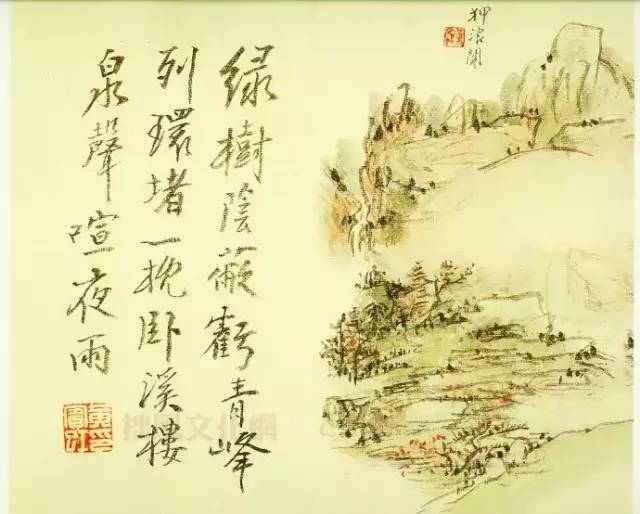 狎浪閣
绿樹陰蔽虧青峰
列環堵一枕卧溪樓
泉聲喧夜雨
文化網